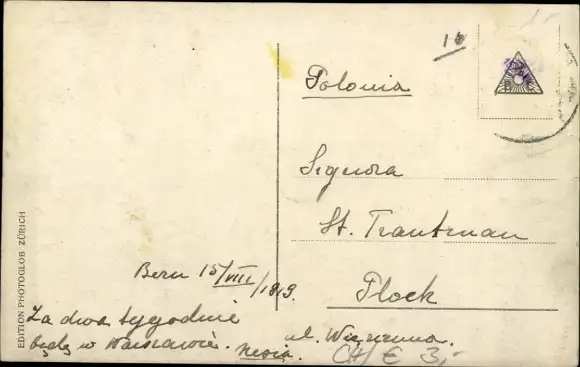 EDITION PHOTOGLOB ZÜRICH
Bern 15/VIII/1919.
Za dwa tygodnie
będę w Warszawie.
Polonia
Signora
St. Trautman
Plock
ul. Więzienna.
CH € 3,-